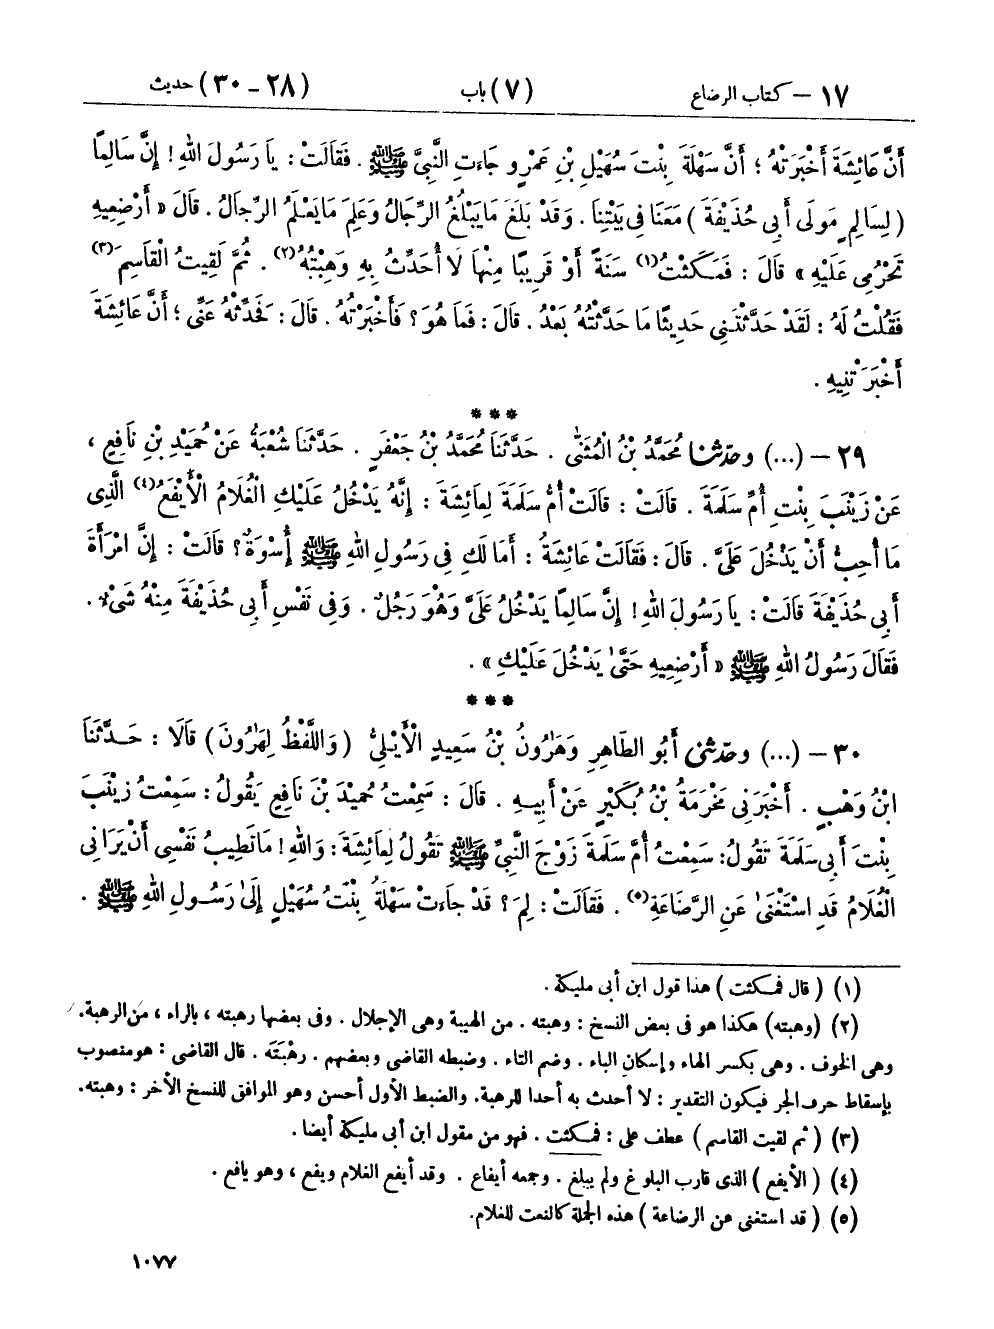 ١٧ – كتاب الرضاع (٧) باب (٢٨ – ٣٠) حديث
أَنَّ عَائِشَةَ أَخْبَرَتْهُ ؛ أَنَّ سَهْلَةَ بِنْتَ سُهَيْلِ بْنِ عَمْرٍو جَاءَتِ النَّبِيَّ ﷺ . فَقَالَتْ : يَا رَسُولَ اللهِ ! إِنَّ سَالِمًا
( لِسَالِمٍ مَوْلَى أَبِي حُذَيْفَةَ ) مَعَنَا فِي بَيْتِنَا . وَقَدْ بَلَغَ مَا يَبْلُغُ الرِّجَالُ وَعَلِمَ مَا يَعْلَمُ الرِّجَالُ . قَالَ « أَرْضِعِيهِ
تَحْرُمِي عَلَيْهِ » قَالَ : فَمَكَثْتُ(١) سَنَةً أَوْ قَرِيبًا مِنْهَا لَا أُحَدِّثُ بِهِ وَهِبْتُهُ(٢) . ثُمَّ لَقِيتُ الْقَاسِمَ(٣)
فَقُلْتُ لَهُ : لَقَدْ حَدَّثْتَنِي حَدِيثًا مَا حَدَّثْتُهُ بَعْدُ . قَالَ : فَمَا هُوَ ؟ فَأَخْبَرْتُهُ . قَالَ : فَحَدِّثْهُ عَنِّي ؛ أَنَّ عَائِشَةَ
أَخْبَرَتْنِيهِ .
***
٢٩ – (...) وحدّثنا مُحَمَّدُ بْنُ الْمُثَنَّى . حَدَّثَنَا مُحَمَّدُ بْنُ جَعْفَرٍ . حَدَّثَنَا شُعْبَةُ عَنْ حُمَيْدِ بْنِ نَافِعٍ ،
عَنْ زَيْنَبَ بِنْتِ أُمِّ سَلَمَةَ . قَالَتْ : قَالَتْ أُمُّ سَلَمَةَ لِعَائِشَةَ : إِنَّهُ يَدْخُلُ عَلَيْكِ الْغُلَامُ الْأَيْفَعُ(٤) الَّذِي
مَا أُحِبُّ أَنْ يَدْخُلَ عَلَيَّ . قَالَ : فَقَالَتْ عَائِشَةُ : أَمَا لَكِ فِي رَسُولِ اللهِ ﷺ أُسْوَةٌ ؟ قَالَتْ : إِنَّ امْرَأَةَ
أَبِي حُذَيْفَةَ قَالَتْ : يَا رَسُولَ اللهِ ! إِنَّ سَالِمًا يَدْخُلُ عَلَيَّ وَهُوَ رَجُلٌ . وَفِي نَفْسِ أَبِي حُذَيْفَةَ مِنْهُ شَيْءٌ .
فَقَالَ رَسُولُ اللهِ ﷺ « أَرْضِعِيهِ حَتَّى يَدْخُلَ عَلَيْكِ » .
***
٣٠ – (...) وحدّثني أَبُو الطَّاهِرِ وَهَرُونُ بْنُ سَعِيدٍ الْأَيْلِيُّ ( وَاللَّفْظُ لِهَرُونَ ) قَالَا : حَدَّثَنَا
ابْنُ وَهْبٍ . أَخْبَرَنِي مَخْرَمَةُ بْنُ بُكَيْرٍ عَنْ أَبِيهِ . قَالَ : سَمِعْتُ حُمَيْدَ بْنَ نَافِعٍ يَقُولُ : سَمِعْتُ زَيْنَبَ
بِنْتَ أَبِي سَلَمَةَ تَقُولُ: سَمِعْتُ أُمَّ سَلَمَةَ زَوْجَ النَّبِيِّ ﷺ تَقُولُ لِعَائِشَةَ : وَاللهِ ! مَا تَطِيبُ نَفْسِي أَنْ يَرَانِي
الْغُلَامُ قَدِ اسْتَغْنَى عَنِ الرَّضَاعَةِ(٥) . فَقَالَتْ : لِمَ ؟ قَدْ جَاءَتْ سَهْلَةُ بِنْتُ سُهَيْلٍ إِلَى رَسُولِ اللهِ ﷺ .
(١) ( قال فمكثت ) هذا قول ابن أبي مليكة .
(٢) (وهبته) هكذا هو في بعض النسخ : وهبته . من الهيبة وهي الإجلال . وفي بعضها رهبته ، بالراء ، من الرهبة.
وهي الخوف . وهي بكسر الهاء وإسكان الباء . وضم التاء . وضبطه القاضي وبعضهم . رهْبَتَه . قال القاضي : هو منصوب
بإسقاط حرف الجر فيكون التقدير : لا أحدث به أحدا للرهبة. والضبط الأول أحسن وهو الموافق للنسخ الأخر : وهبته.
(٣) ( ثم لقيت القاسم ) عطف على : فمكثت . فهو من مقول ابن أبي مليكة أيضا .
(٤) ( الأيفع ) الذي قارب البلوغ ولم يبلغ . وجمعه أيفاع . وقد أيفع الغلام ويفع ، وهو يافع .
(٥) ( قد استغنى عن الرضاعة ) هذه الجملة كالنعت للغلام.
١٠٧٧